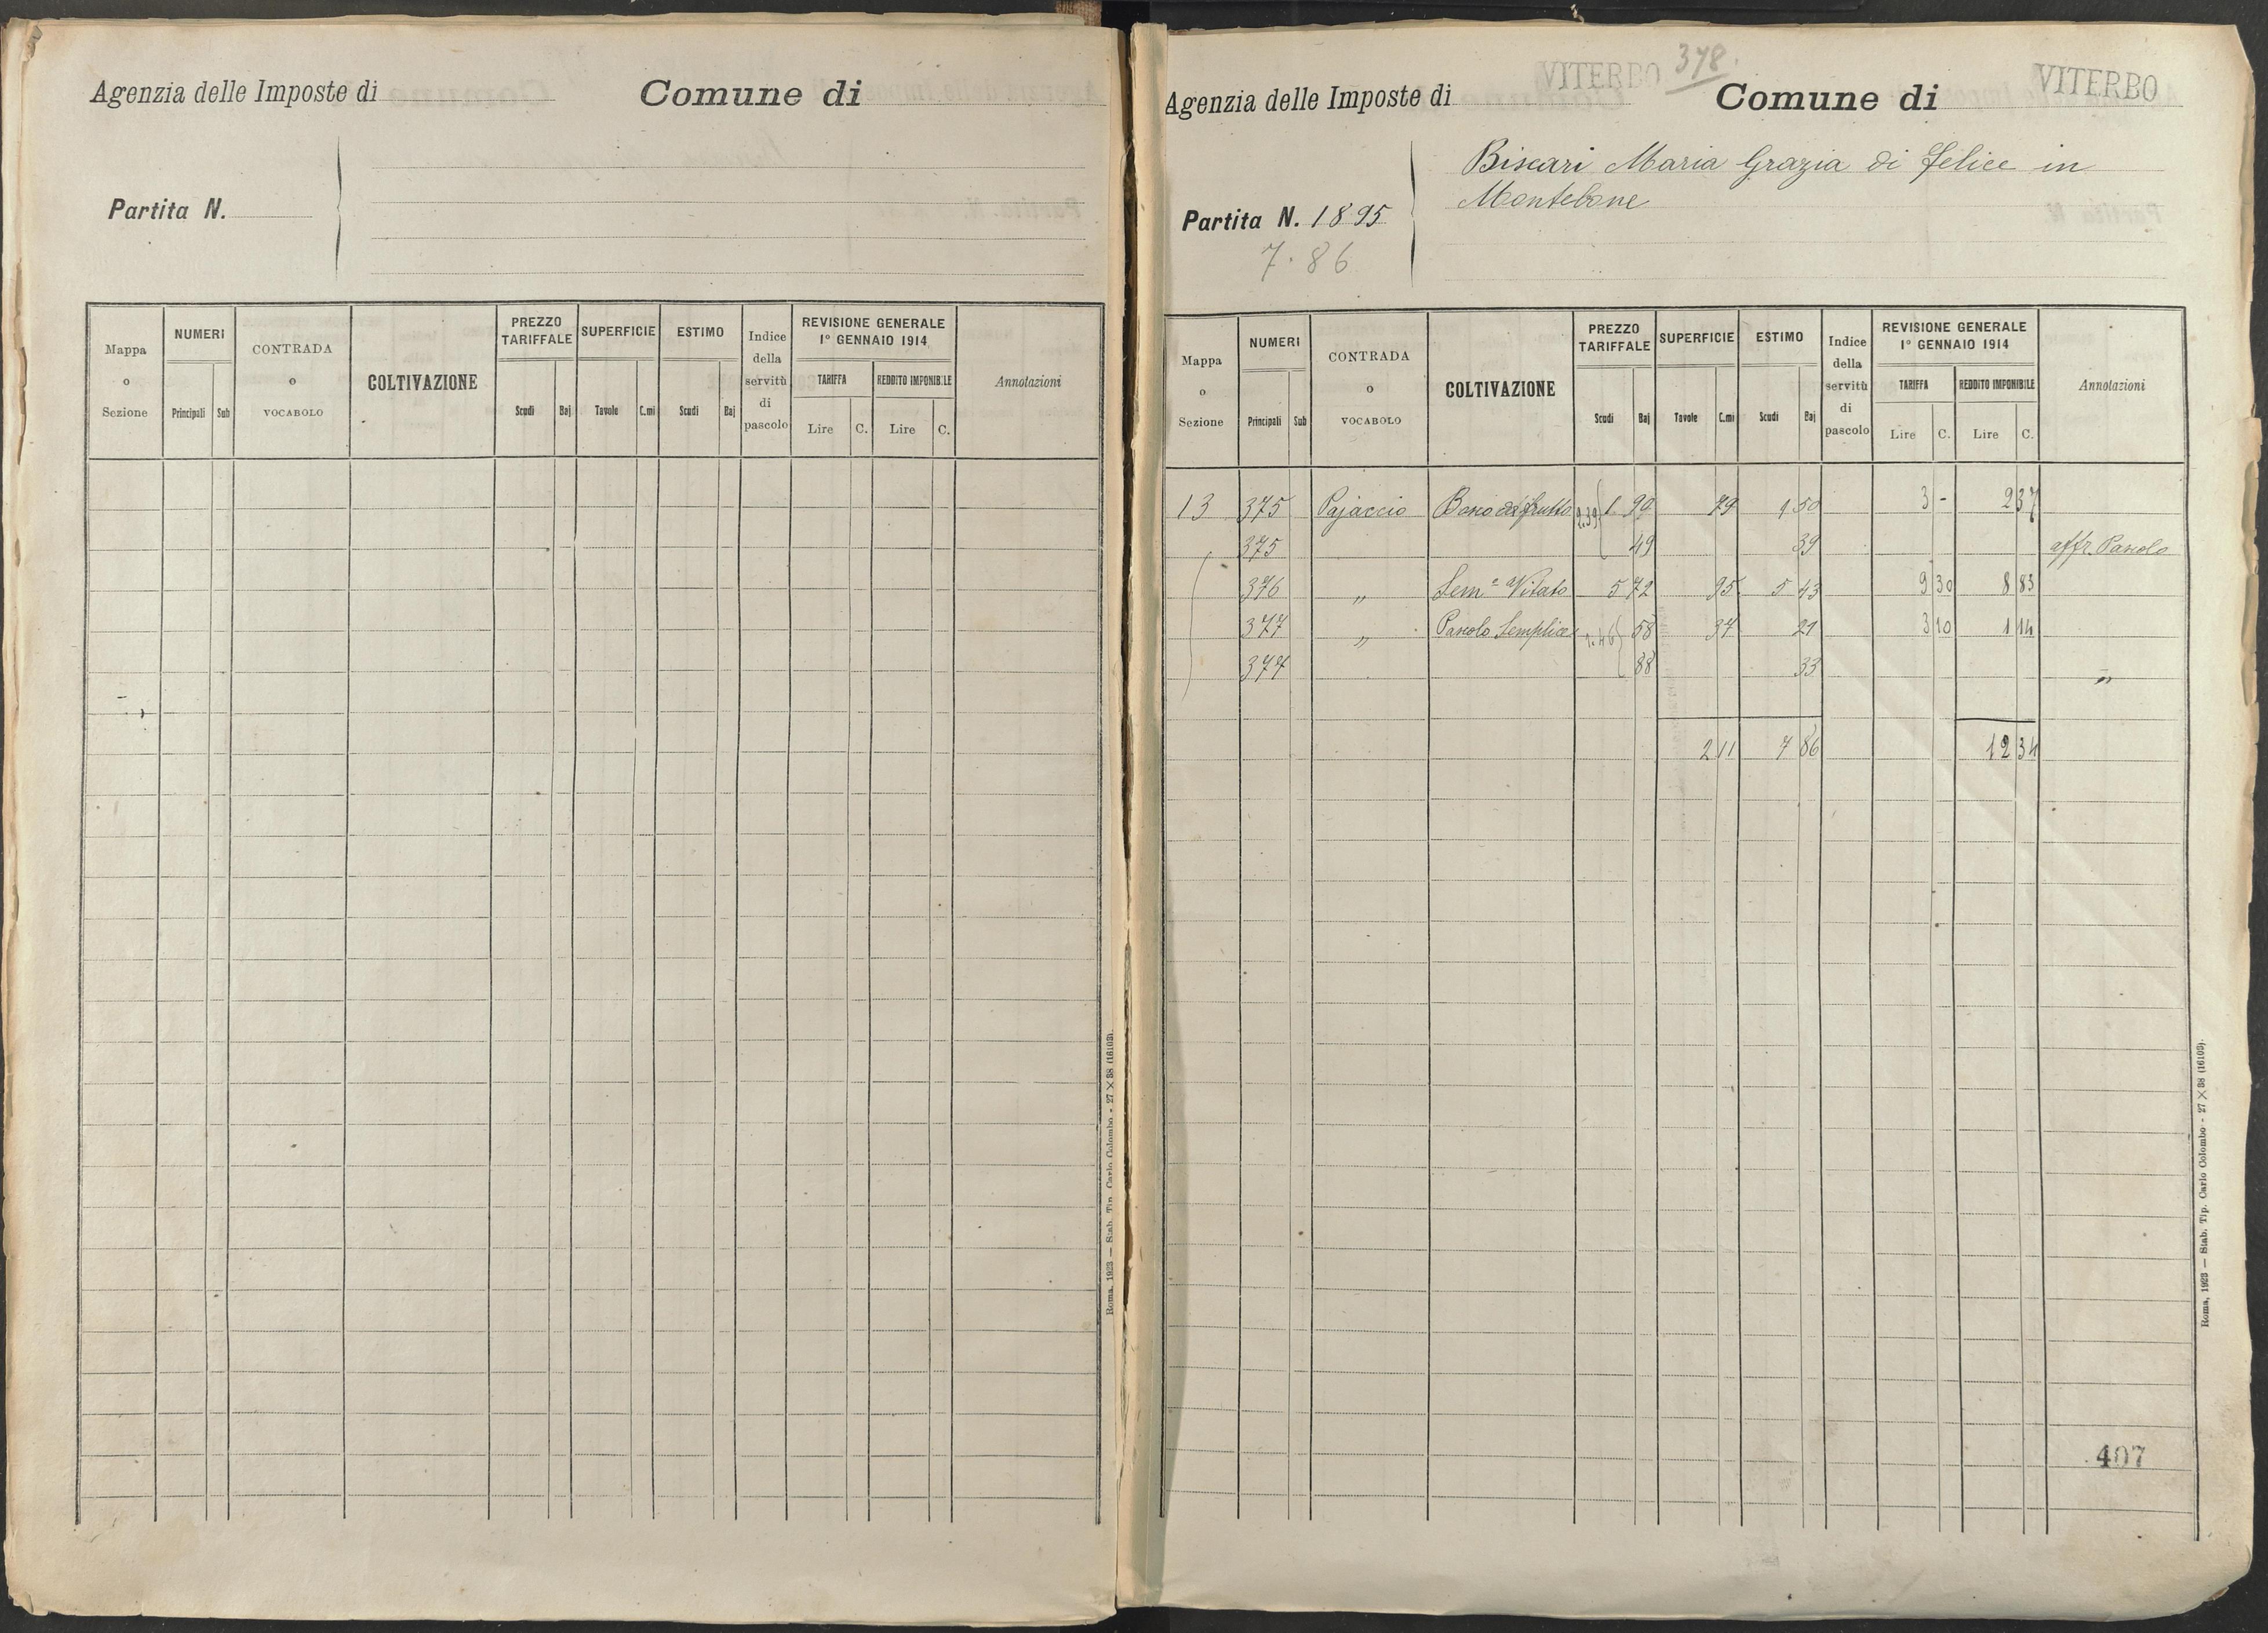 Agenzia delle Imposte di Comune di
Partita N.
Mappa o Sezione NUMERI Principali Sub CONTRADA o VOCABOLO COLTIVAZIONE PREZZO TARIFFALE Scudi Baj SUPERFICIE Tavole C.mi ESTIMO Scudi Baj Indice della servitù di pascolo REVISIONE GENERALE 1° GENNAIO 1914 TARIFFA Lire C. REDDITO IMPONIBILE Lire C. Annotazioni
Roma, 1923 — Stab. Tip. Carlo Colombo - 27 × 38 (16103).
378.
Agenzia delle Imposte di VITERBO Comune di VITERBO
Biscari Maria Grazia di Felice in
Partita N. 1895
7.86
Mappa o Sezione NUMERI Principali Sub CONTRADA o VOCABOLO COLTIVAZIONE PREZZO TARIFFALE Scudi Baj SUPERFICIE Tavole C.mi ESTIMO Scudi Baj Indice della servitù di pascolo REVISIONE GENERALE 1° GENNAIO 1914 TARIFFA Lire C. REDDITO IMPONIBILE Lire C. Annotazioni
13 375 Pajaccio Bosco da frutto 2.39 1 90 79 1 50 3 - 2 37
375 49 39 affr. Pascolo
376 " Sem.o Vitato 5 72 95 5 43 9 30 8 83
377 " Pascolo Semplice 1.46 58 37 21 3 10 1 14
377 88 33 "
2 11 7 86 12 34
407
Roma, 1923 — Stab. Tip. Carlo Colombo - 27 × 38 (16103).